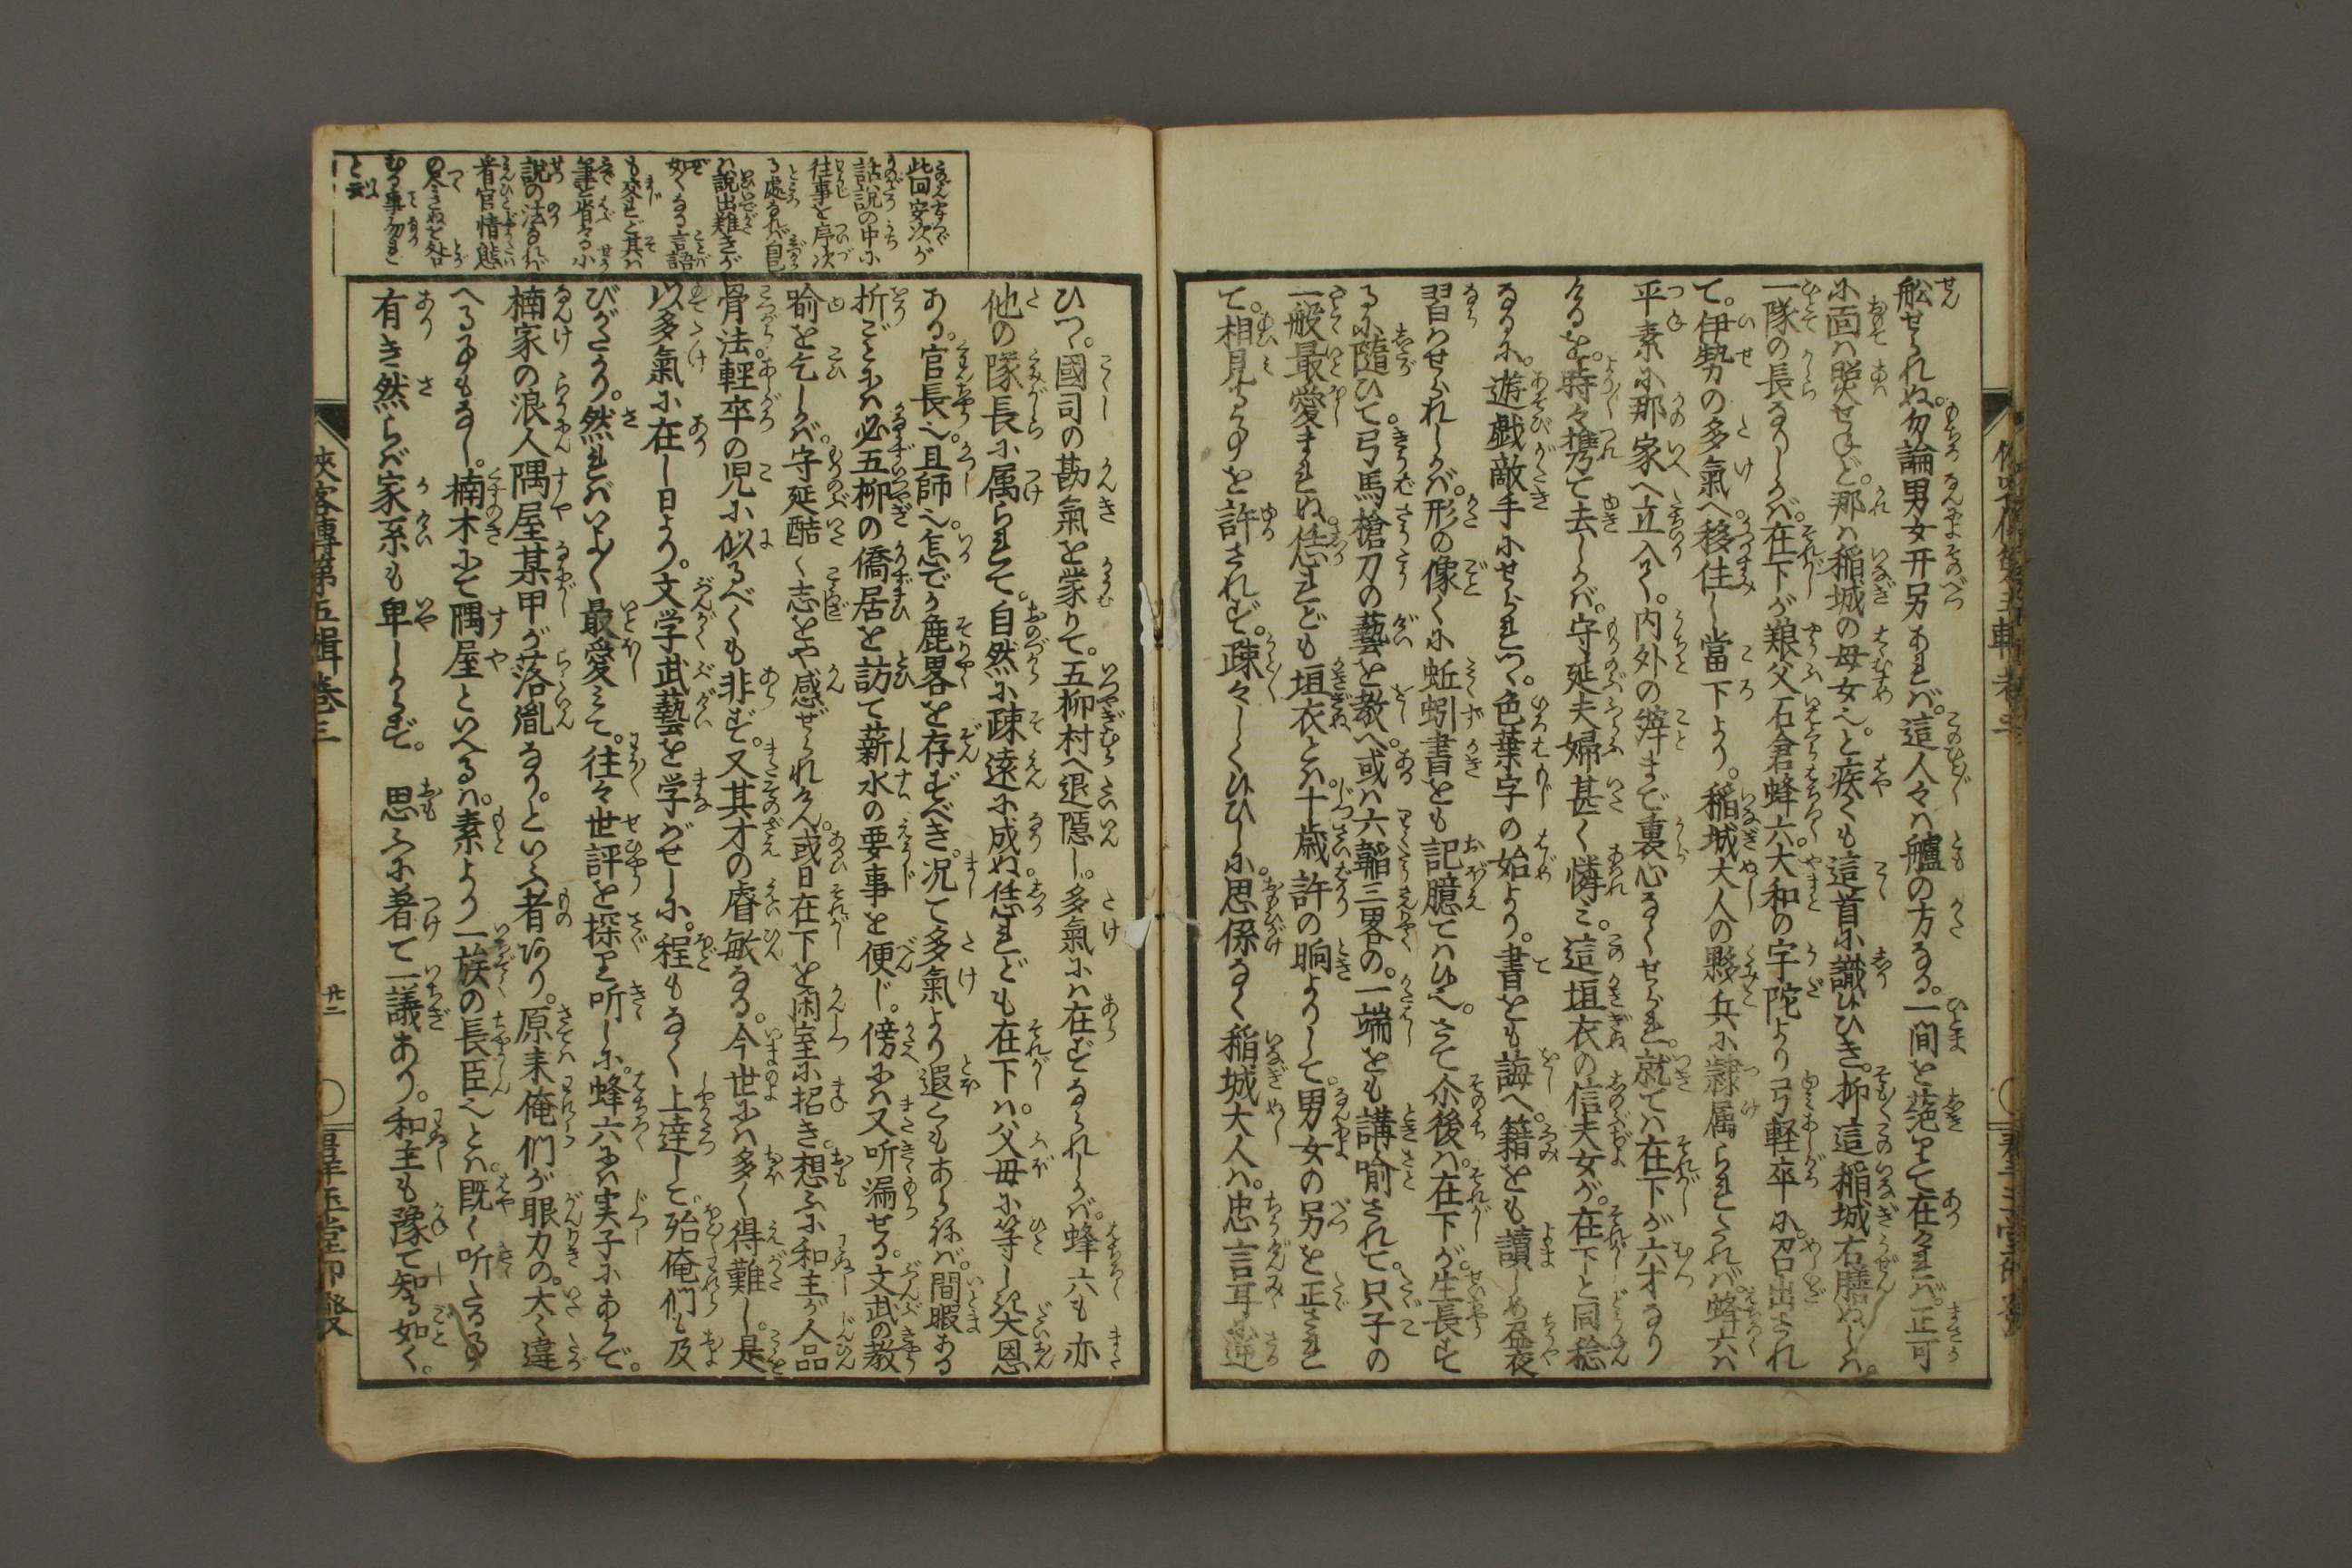 舩せられぬ。勿論男女开另あれバ。這人々ハ艫の方なる。一間を蔭て在けれバ。正可
に面ハ照せねど。那ハ稲城の母女也。と疾くも這首に識ひひき。抑這稲城右膳ぬしハ。
一隊の長なりしかバ。在下が養父石倉蜂六。大和の宇陀より弓軽卒に。召出され
て。伊勢の多氣へ移住し當下より。稲城大人の夥兵に隷属られたれバ。蜂六ハ
平素に那家へ立入く。内外の辨まで裏心なくせられ。就てハ在下が六才なり
けるを。時々携て去しかバ。守延夫婦甚く憐ミ。這垣衣の信夫女が。在下と同稔
なるに。遊戯敵手にせられつ。色葉字の始より。書をも誨へ。籍をも讀しめ昼夜
習ハせられしかバ。形の像くに蚯蚓書をも記臆てハひ也。さて尒後ハ在下が。生長す
るに隨ひて。弓馬槍刀の藝を教へ。或ハ六韜三畧の。一端をも講喻されて。只子の
一般最愛まれぬ。恁れども垣衣とハ十歳許の晌よりして。男女の另を正され
て。相見ることを許されず。疎々しくひひしに。思係なく稲城大人ハ。忠言耳に逆
ひつ。國司の勘氣を蒙りて。五柳村へ退隠し。多氣にハ在ずなられしかバ。蜂六も亦
他の隊長に属られて。自然に疎遠に成ぬ。恁れども在下ハ。父母に等しき大恩
ある。官長也。且師也。怎でか麁畧を存ずべき。况て多氣より遐くもあらねバ。間暇ある
折ごとにハ必五柳の僑居を訪て薪水の要事を便じ。傍にハ又听漏せる。文武の教
喻を乞しかバ。守延酷く志をや感ぜられけん。或日在下を閑室に招き。想ふに和主が人品
骨法。軽卒の児に似るべくも非ず。又其才の睿敏なる。今世にハ多く得難し。是
以多氣に在し日より。文学武藝を学バせしに。程もなく上達して殆俺們も及
びがたかり。然れバいよく最愛ミて。往々世評を探り听しに。蜂六にハ実子にあらで。
楠家の浪人隅屋某甲が落胤なり。といふ者あり。原来俺們が眼力の。太く違
へる事もなし。楠木にて隅屋といへるハ。素より一族の長臣也とハ。既く听たる事
有き然らバ家系も卑しからず。思ふに著て一議あり。和主も豫て知る如く。
此回安次が
話説の中に
往事を序次
る處なれバ自
ハ説出難きが
如くなる言語
も交れど其ハ
筆を省くるに
説の法なれバ
看官情態
の尽きぬを咎
むる事勿れ
と云
俠客傳第五輯巻三
廿二
群玉堂印發